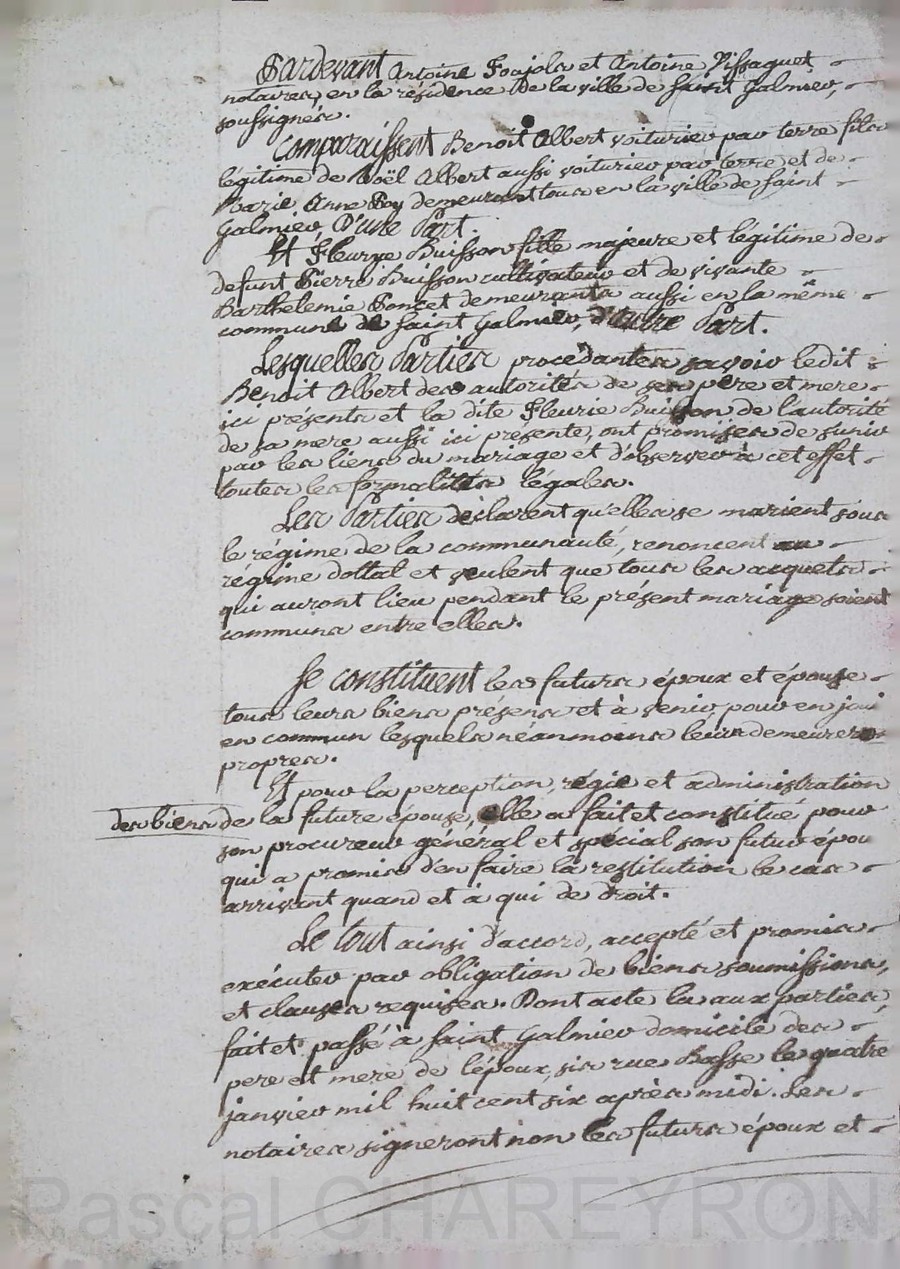 Pardevant Antoine Foujols et Antoine Vissaguet
notaires, en la résidence de la ville de Saint Galmier,
soussignés.
Comparaissent Benoit Albert voiturier par terre fils
légitime de Noël Albert aussi voiturier par terre et de
Marie Anne Rey demeurant tous en la ville de saint
Galmier, D'une Part.
Et Fleurye Buisson fille majeure et légitime de
defunt Pierre Buisson cultivateur et de vivante
Barthelemie Poncet demeurants aussi en la même
commune de saint Galmier, d'Autre Part.
Lesquelles Parties procédantes savoir ledit
Benoit Albert des autorités de ses pere et mere
ici présents et la dite Fleurie Buisson de l'autorité
de sa mere aussi ici présente, ont promises de s'unir
par les liens du mariage et d'observer à cet effet
toutes les formalités légales.
Les Parties déclarent qu'elles se marient sous
le régime de la communauté, renoncent au
régime dottal et veulent que tous les acquets
qui auront lieu pendant le présent mariage soient
communs entre elles.
Se constituent les futurs époux et épouse
tous leurs biens présens et à venir pour en joui
en commun lesquels néanmoins leurs demeureron
propres.
Et pour la perception, régie et administration
des biens de la future épouse, elle a fait et constitué pour
son procureur général et spécial son futur épou
qui a promis d'en faire la restitution le cas
arrivant quand et à qui de droit.
Le tout ainsi d'accord, accepté et promis
exécuter par obligation de biens soumissions,
et clauses requises. Dont acte lu aux parties,
fait et passé à saint Galmier domicile des
pere et mere de l'époux, sis rue Basse le quatre
janvier mil huit cent six après midi. Les
notaires signeront non les futurs époux et
Pascal CHAREYRON